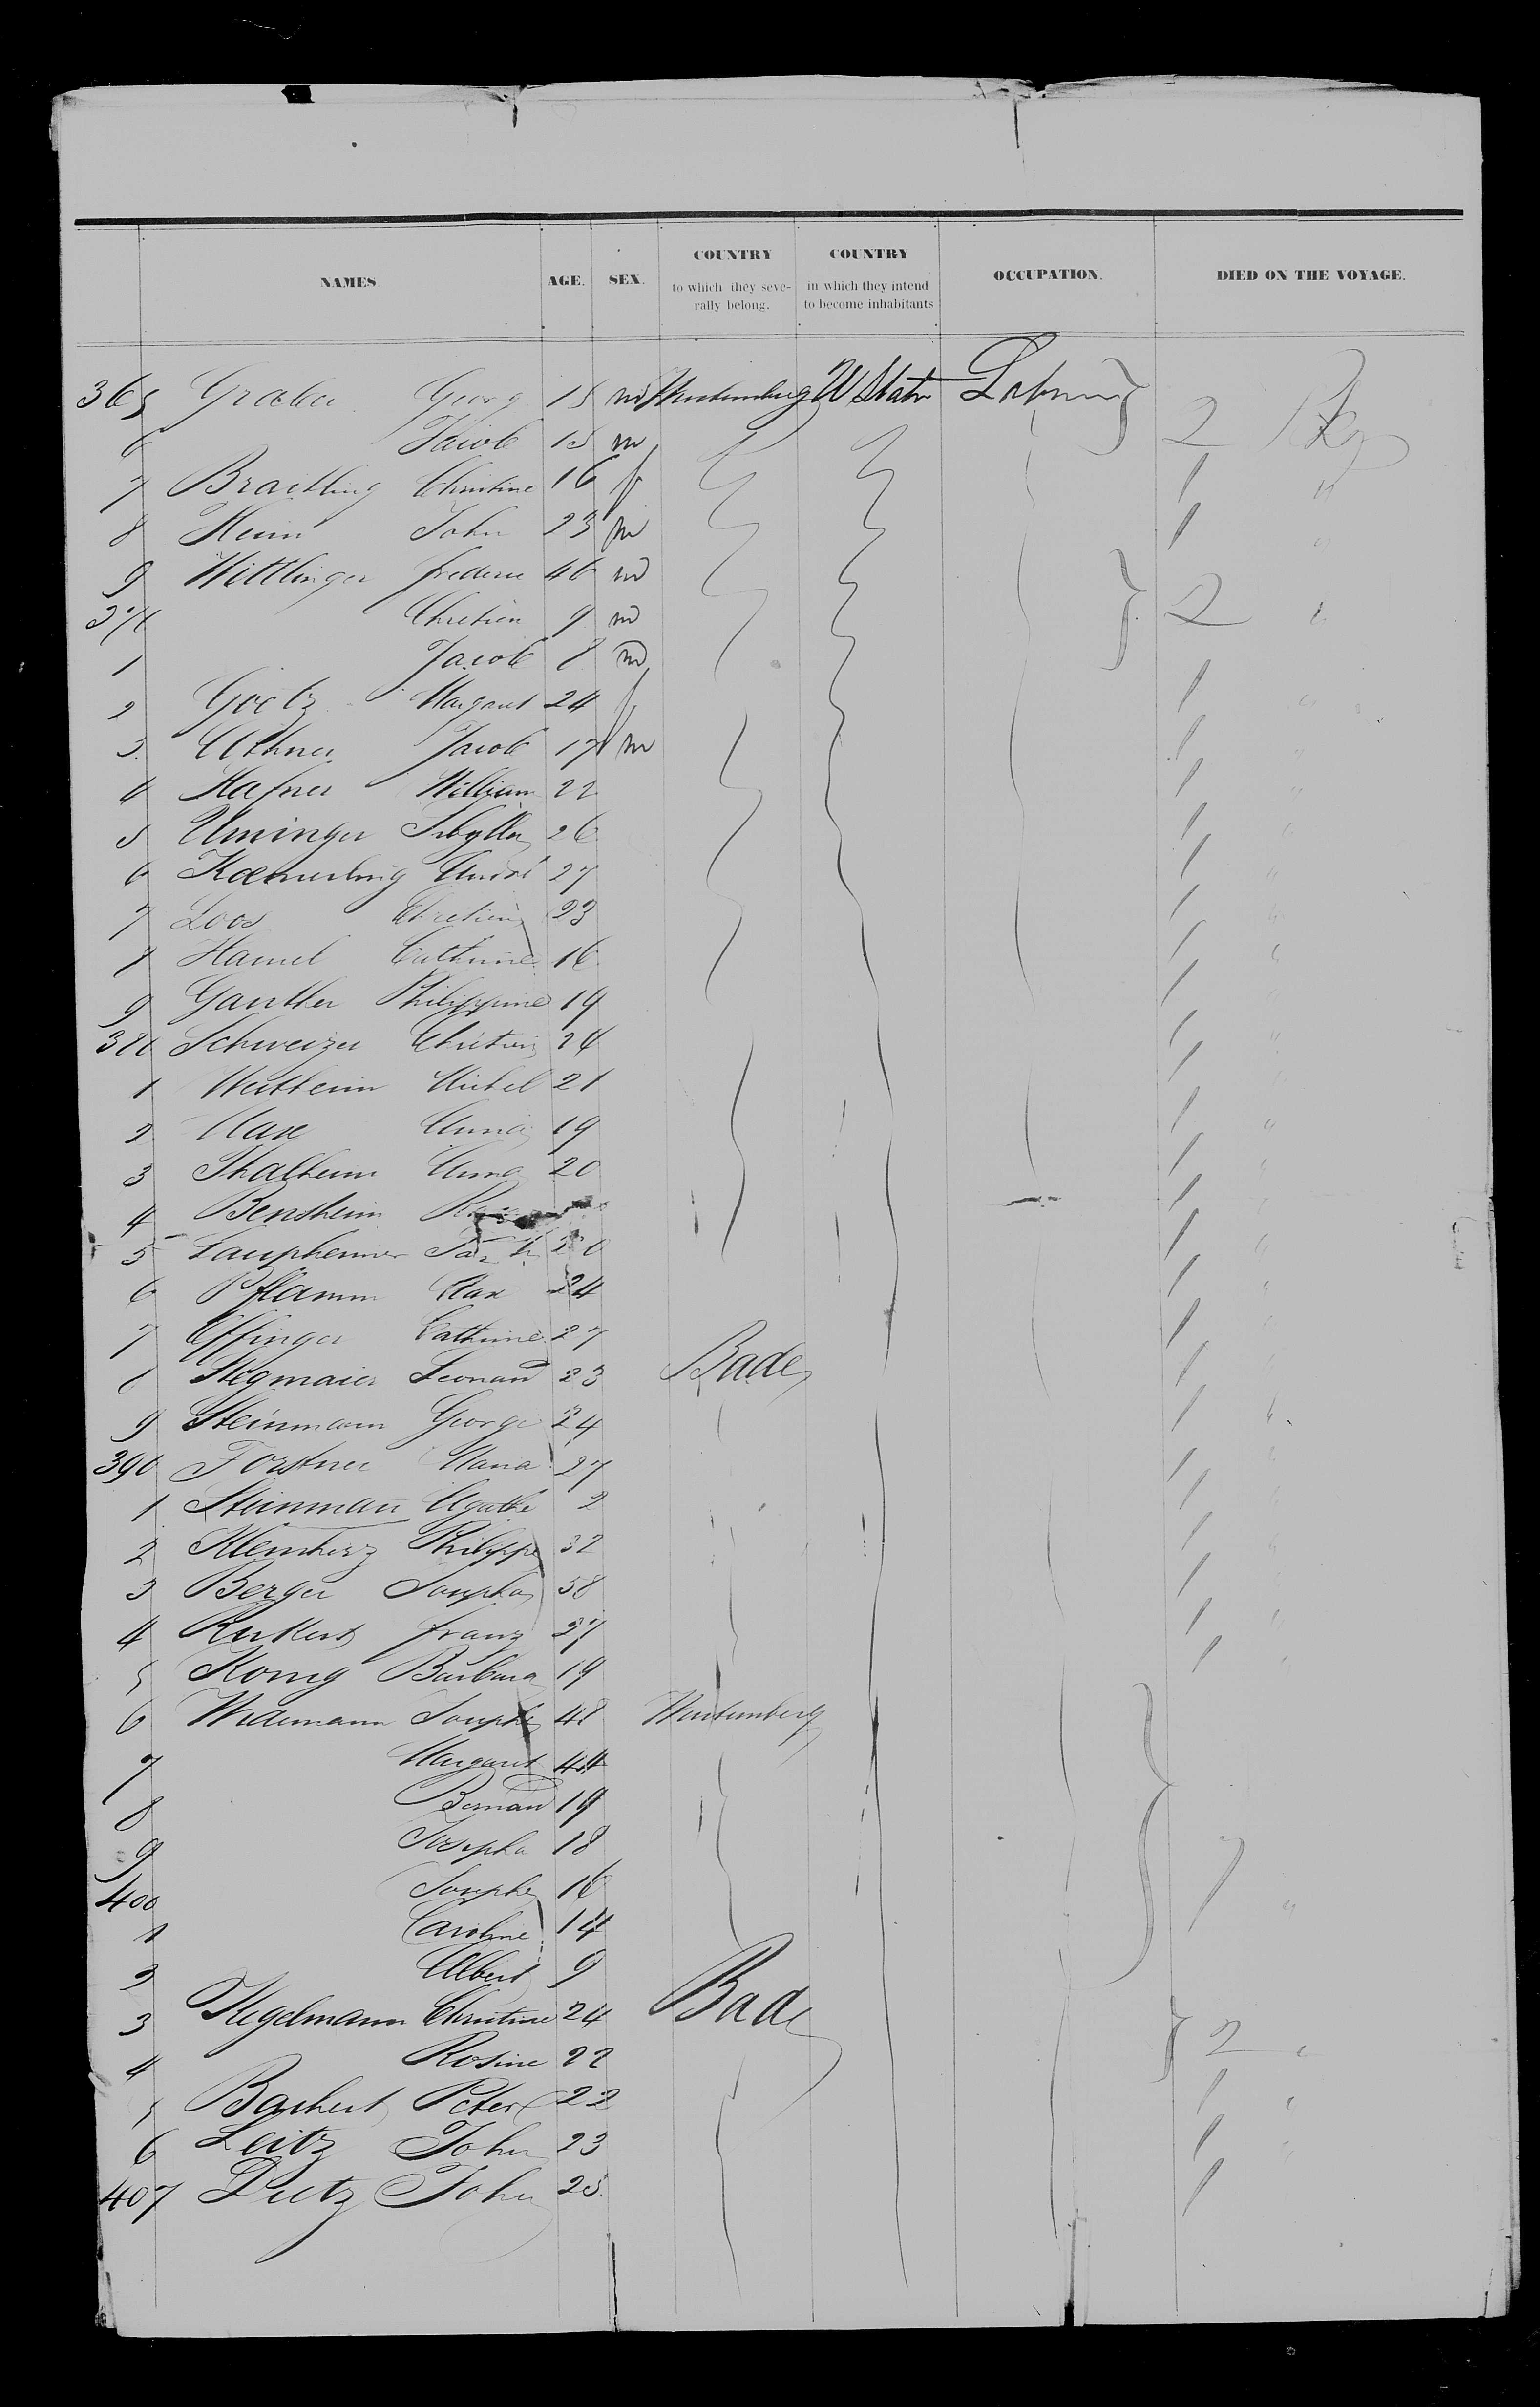 NAMES. AGE. SEX. COUNTRY to which they severally belong. COUNTRY in which they intend to become inhabitants OCCUPATION. DIED ON THE VOYAGE.
365 Graber Georg 15 m Wurtemberg U States 2
6 Jacob 15 m
7 Braitling Christine 16 f 1 "
8 John 23 m 1 "
9 Wittlinger frederic 46 m
370 Chretien 9 m 2 "
1 Jacob 8 m
2 Goetz Margaret 24 f 1 "
3 Jacob 17 m 1 "
4 Hafner William 22 1 "
5 Uminger Sibylla 26 1 "
6 André 27 1 "
7 Loos Chretien 23 1 "
8 Hamel Catherine 16 1 "
9 Ganther Philippine 19 1 "
380 Schweizer Chretien 24 1 "
1 Michel 21 1 "
2 Anna 19 1 "
3 Thalheim Anna 20 1 "
4 Bensheim 1 "
5 Laupheimer 20 1 "
6 Pflamm Max 24 1 "
7 Effinger Catherine 27 1 "
8 Stegmaier Leonard 23 Bade 1 "
9 Steinmann George 24 1 "
390 Forstner 27 1 "
1 Steinman Agathe 2 1 "
2 Philippe 32 1 "
3 Berger Josepha 58 1 "
4 Rukert franz 27 1 "
5 Konig Barbara 19 1 "
6 Widemann Joseph 48 Wurtemberg
7 Margaret 44
8 Bernard 19
9 Josepha 18
400 Josephe 16 7 "
1 Caroline 14
2 Albert 9
3 Kegelmann Christine 24 Bade
4 Rosine 22 2 "
5 Bachert Peter 22 1 "
6 Leitz John 23 1 "
407 Dietz John 25 1